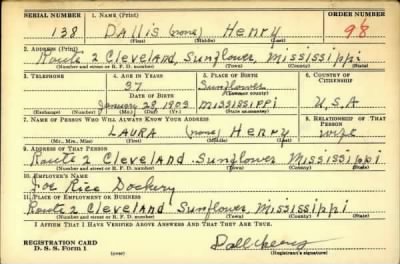 SERIAL NUMBER 1. NAME (Print) ORDER NUMBER
138 Dallis (none) Henry 98
(First) (Middle) (Last)
2. ADDRESS (Print)
Route 2 Cleveland, Sunflower, Mississippi
(Number and street or R. F. D. number) (Town) (County) (State)
3. TELEPHONE 4. AGE IN YEARS 5. PLACE OF BIRTH 6. COUNTRY OF CITIZENSHIP
37 Sunflower
(Town or county)
DATE OF BIRTH
January 28 1903 Mississippi U.S.A
(Exchange) (Number) (Mo.) (Day) (Yr.) (State or country)
7. NAME OF PERSON WHO WILL ALWAYS KNOW YOUR ADDRESS 8. RELATIONSHIP OF THAT PERSON
Laura (none) Henry wife
(Mr., Mrs., Miss) (First) (Middle) (Last)
9. ADDRESS OF THAT PERSON
Route 2 Cleveland Sunflower Mississippi
(Number and street or R. F. D. number) (Town) (County) (State)
10. EMPLOYER'S NAME
Joe Rice Dockery
11. PLACE OF EMPLOYMENT OR BUSINESS
Route 2 Cleveland Sunflower, Mississippi
(Number and street or R. F. D. number) (Town) (County) (State)
I AFFIRM THAT I HAVE VERIFIED ABOVE ANSWERS AND THAT THEY ARE TRUE.
REGISTRATION CARD
D. S. S. Form 1 (over) (Registrant's signature)